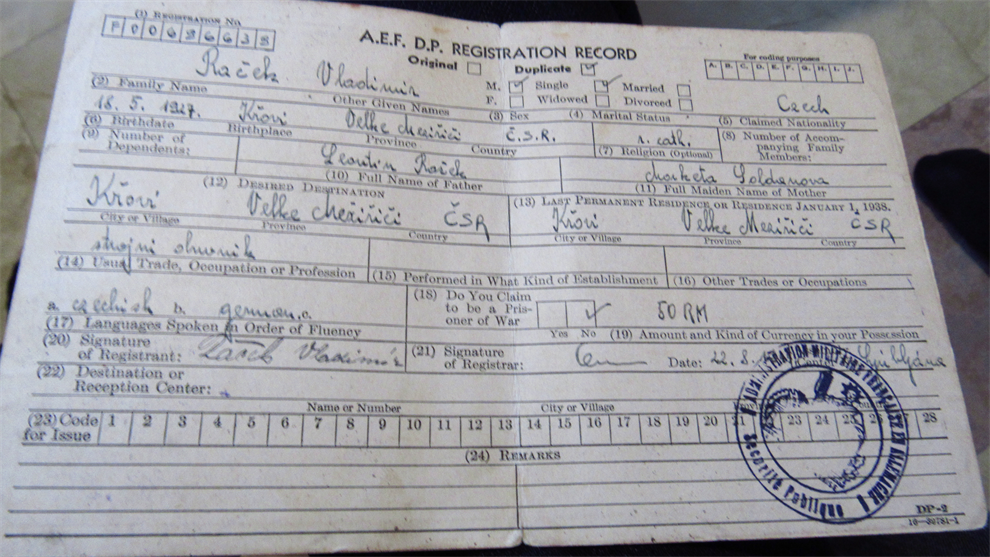 (1) REGISTRATION NO.
F 0 0 6 8 6 6 3 8
A.E.F. D.P. REGISTRATION RECORD
Original Duplicate ✓
For coding purposes
A. B. C. D. E. F. G. H. I. J.
Raček Vladimír M. ✓ Single ✓ Married Czech
(2) Family Name Other Given Names F. Widowed Divorced
(3) Sex (4) Marital Status (5) Claimed Nationality
18. 5. 1927. Křovi Velke Meziřiči Č.S.R. r. cath.
(6) Birthdate Birthplace Province Country (7) Religion (Optional) (8) Number of Accompanying Family Members:
(9) Number of Dependents: Raček
(10) Full Name of Father
Marketa
(11) Full Maiden Name of Mother
(12) DESIRED DESTINATION
Křovi Velke Meziřiči ČSR
City or Village Province Country
(13) LAST PERMANENT RESIDENCE OR RESIDENCE JANUARY 1, 1938.
Křovi Velke Meziřiči ČSR
City or Village Province Country
strojni
(14) Usual Trade, Occupation or Profession (15) Performed in What Kind of Establishment (16) Other Trades or Occupations
a. czechish b. german c.
(17) Languages Spoken in Order of Fluency
(18) Do You Claim to be a Prisoner of War ✓
Yes No
50 RM
(19) Amount and Kind of Currency in your Possession
(20) Signature of Registrant: Raček Vladimír
(21) Signature of Registrar: Date: 22. 8.
(22) Destination or Reception Center:
Name or Number City or Village
(23) Code for Issue 1 2 3 4 5 6 7 8 9 10 11 12 13 14 15 16 17 18 19 20 21 23 24 25 28
(24) REMARKS
ADMINISTRATION MILITAIRE FRANÇAISE EN ALLEMAGNE
Sécurité Publique
DP-2
16—39781-1